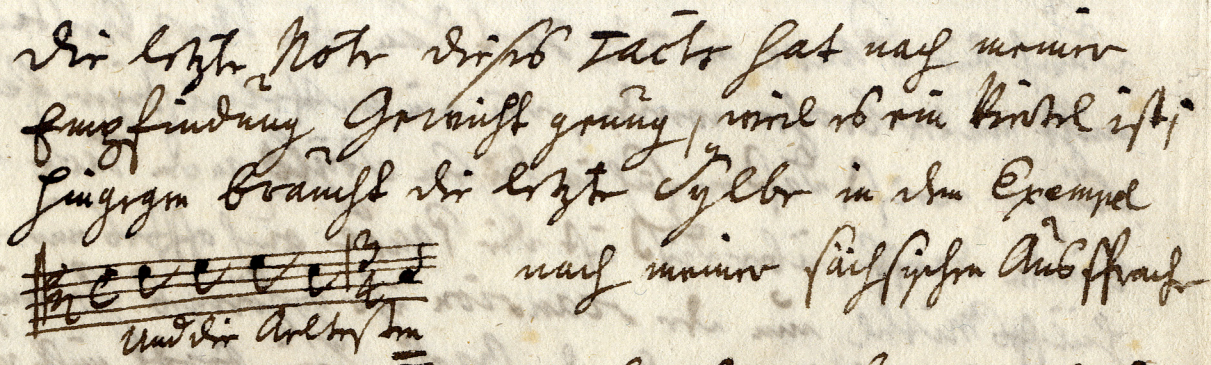 die letzte Note dieses Tacts hat nach meiner
Empfindung Gewicht genug, weil es ein Viertel ist;
hingegen braucht die letzte Sylbe in dem Exempel
nach meiner sächsischen Aussprache
Und die Aeltesten